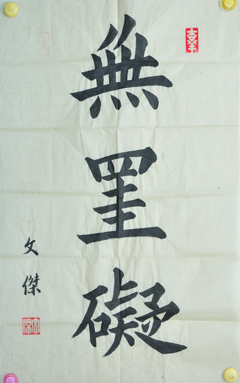 無罣礙
文傑